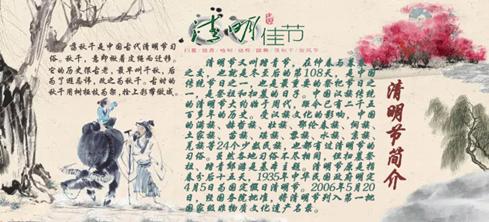 清明佳节
荡秋千是中国古代清明节习
俗。秋千，意即揪着皮绳而迁移。
它的历史很古老，最早叫千秋，后
为了避忌讳，改之为秋千。古时的
秋千用树桠枝为架，拴上彩带做成。
清明节又叫踏青节，在仲春与暮春
之交，也就是冬至后的第108天，是中国
传统节日之一，也是最重要的祭祀节日之
一，是祭祖和扫墓的日子。中国汉族传统
的清明节大约始于周代，距今已有二千五
百多年的历史。受汉族文化的影响，中国
的满族、赫哲族、壮族、鄂伦春族、侗族、
土家族、苗族、瑶族、黎族、水族、京族、
羌族等24个少数民族，也都有过清明节的
习俗。虽然各地习俗不尽相同，但扫墓祭
祖、踏青郊游是基本主题。清明节原是指
春分后十五天，1935年中华民国政府明定
4月5日为国定假日清明节。2006年5月20
日，经国务院批准，将清明节列入第一批
国家级非物质文化遗产名录。
清明节简介